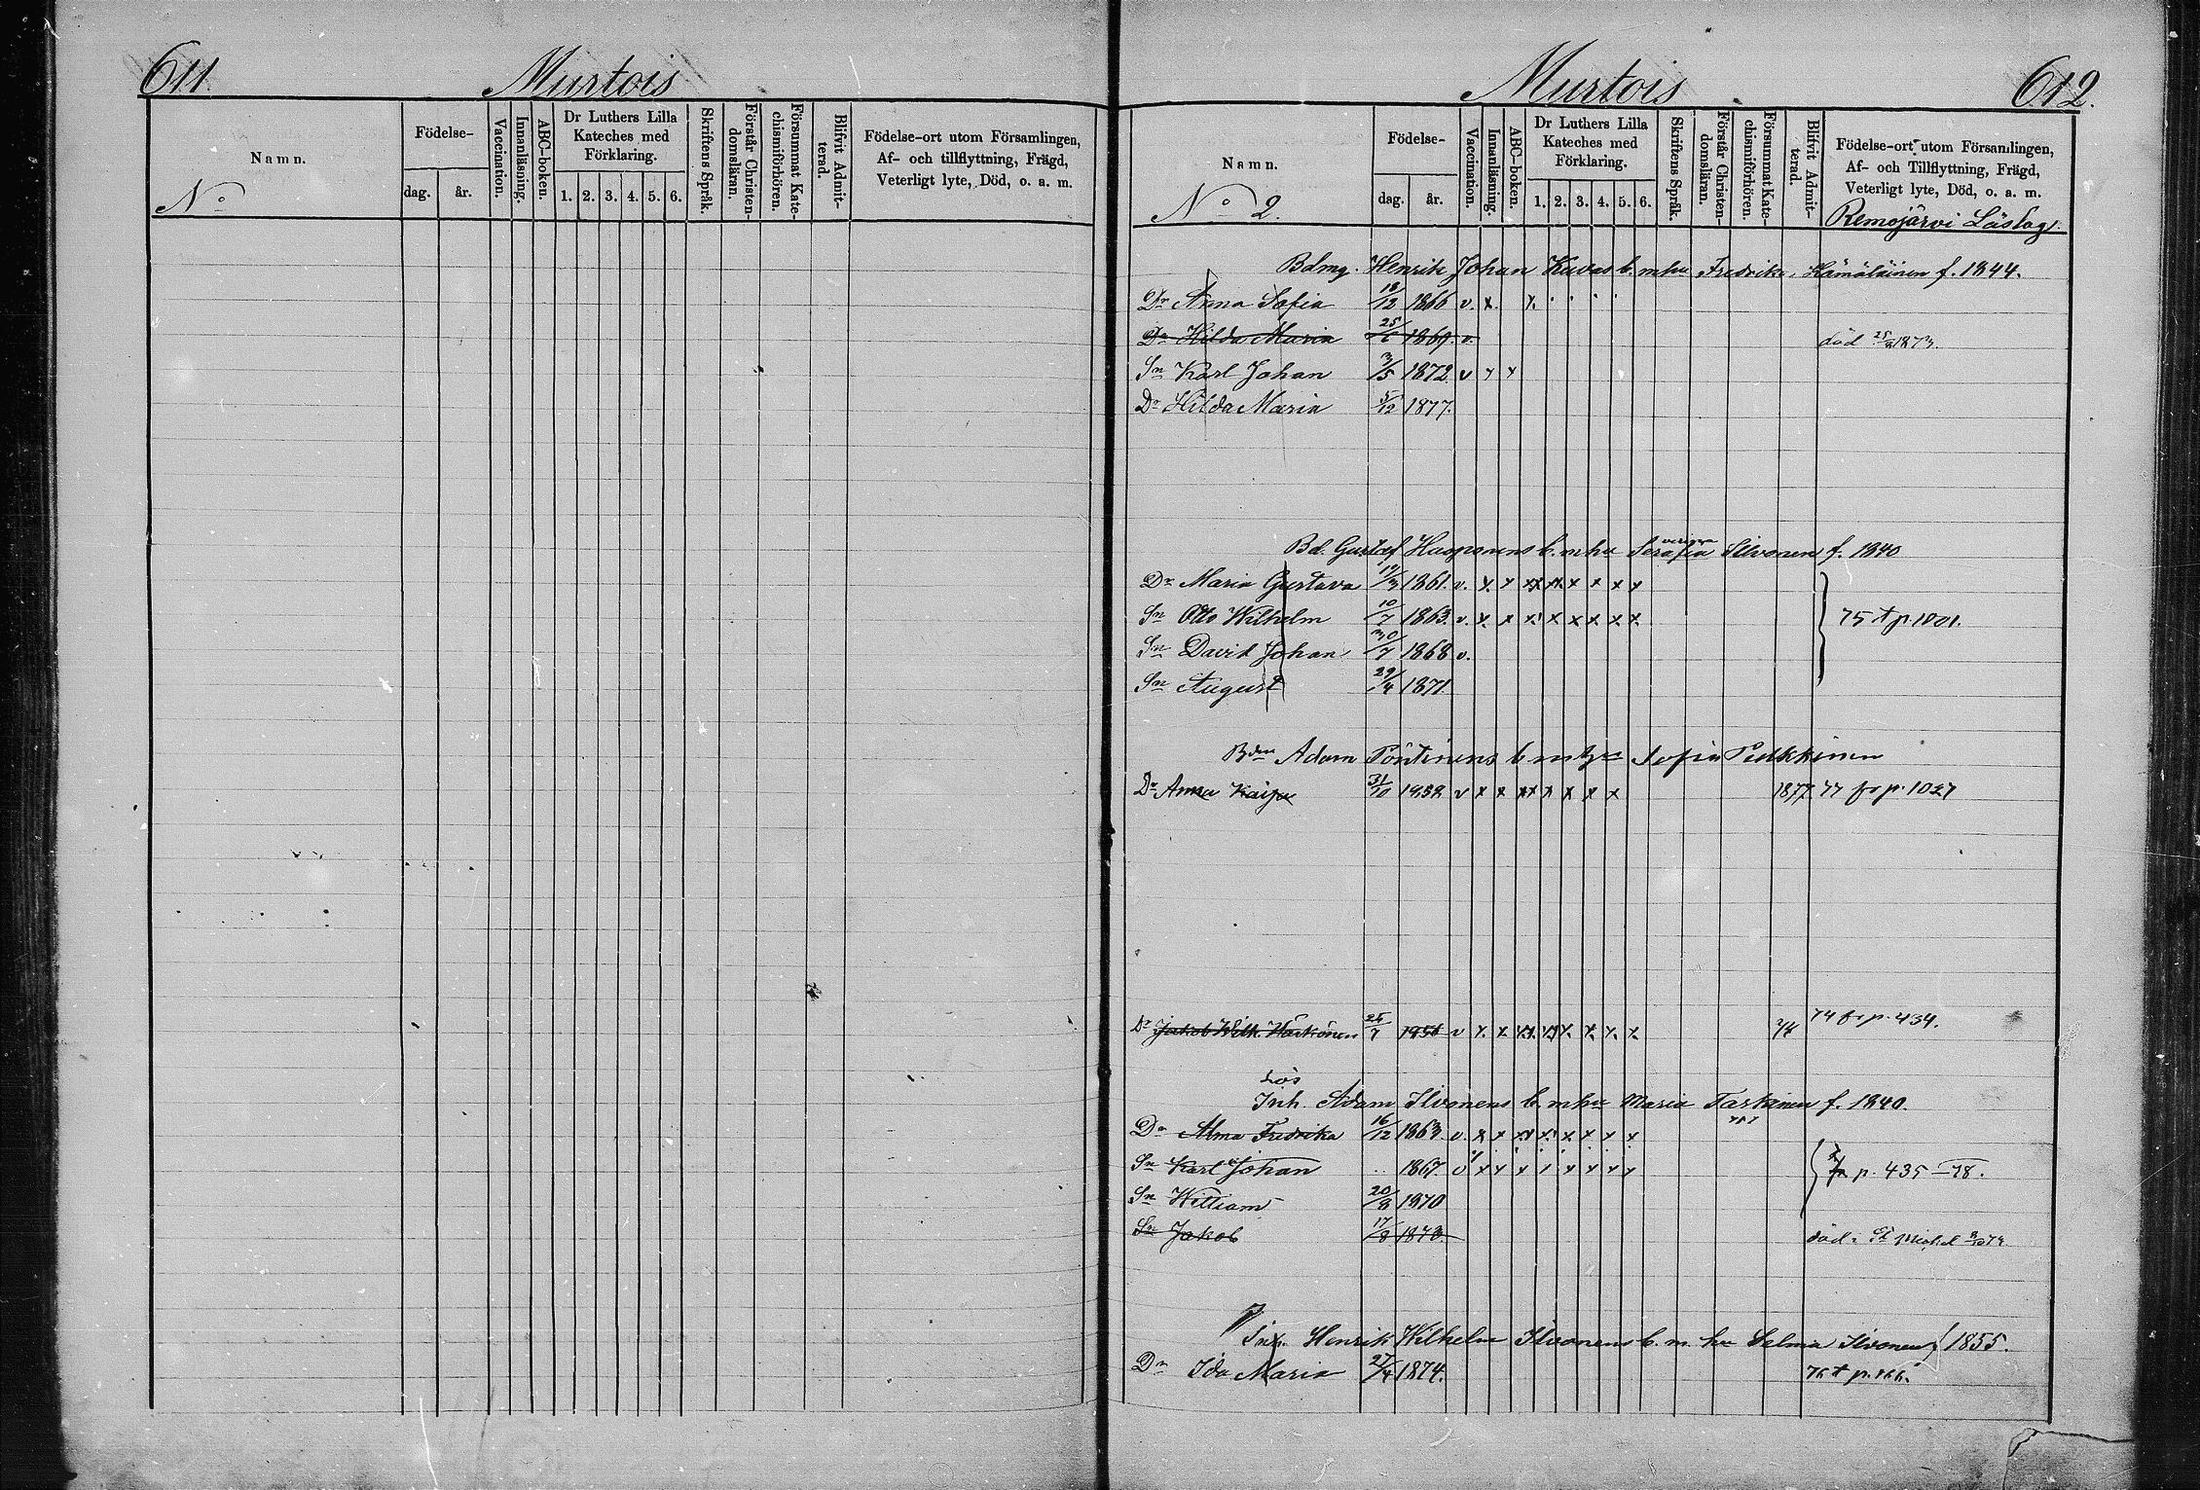 611.
Murtois
Namn.
Födelse-
dag. år.
Vaccination.
Innanläsning.
ABC-boken.
Dr Luthers Lilla Kateches med Förklaring.
1. 2. 3. 4. 5. 6.
Skriftens Språk.
Förstår Christendomsläran.
Försummat Katechismiförhören.
Blifvit Admitterad.
Födelse-ort utom Församlingen,
Af- och tillflyttning, Frägd,
Veterligt lyte, Död, o. a. m.
No
Murtois
612.
Namn.
Födelse-
dag. år.
Vaccination.
Innanläsning.
ABC-boken.
Dr Luthers Lilla Kateches med Förklaring.
1. 2. 3. 4. 5. 6.
Skriftens Språk.
Förstår Christen-domsläran.
Försummat Kate-chismiförhören.
Blifvit Admit-terad.
Födelse-ort utom Församlingen,
Af- och Tillflyttning, Frägd,
Veterligt lyte, Död, o. a. m.
No 2.
Remojärvi Läslag.
Bdmg. Henrik Johan Kuvas b. m hu Fredrika Hämäläinen f. 1844.
Dr Anna Sofia 18/12 1866 v. x. x.
Dr Hilda Maria 25/6 1869. v. död 1873.
Sn Karl Johan 3/5 1872 v x x
Dr Hilda Maria 5/12 1877.
Bd. Gustaf Haaponens b. m hu Serafia Ilvonen f. 1840
Dr Maria Gustava 1861. v. x x xx xx x x x x
Sn Otto Wilhelm 10/7 1863. v. x. x x. x x x. x. x. 75 t p. 1001.
Sn David Johan 30/7 1868 v.
Sn August 29/4 1871
Adam Pöntinens b m Sofia Pulkkinen
Dr Anna Kaisa 31/10 v x x xx x x x x 1877. 77 fr p. 1027
Jakob Wilh. Härkönen 25/7 v x. x x. x. x. x. 74 fr p. 434.
Lös
Inh. Adam Ilvonens b. m hu Maria Tarkiainen f. 1840.
Dr Alma Fredrika 16/12 1863 v. x x xx x x x x x
Sn Karl Johan 1867. v x x x x x x x p. 435 – 78.
Sn William 20/8 1870
Sn Jakob 17/8 1873. död i St Michel
Inh. Henrik Wilhelm Ilvonens b. m. hu Selma Ilvonen f 1855.
Dr Ida Maria 27/4 1874. 76 t p. 166.